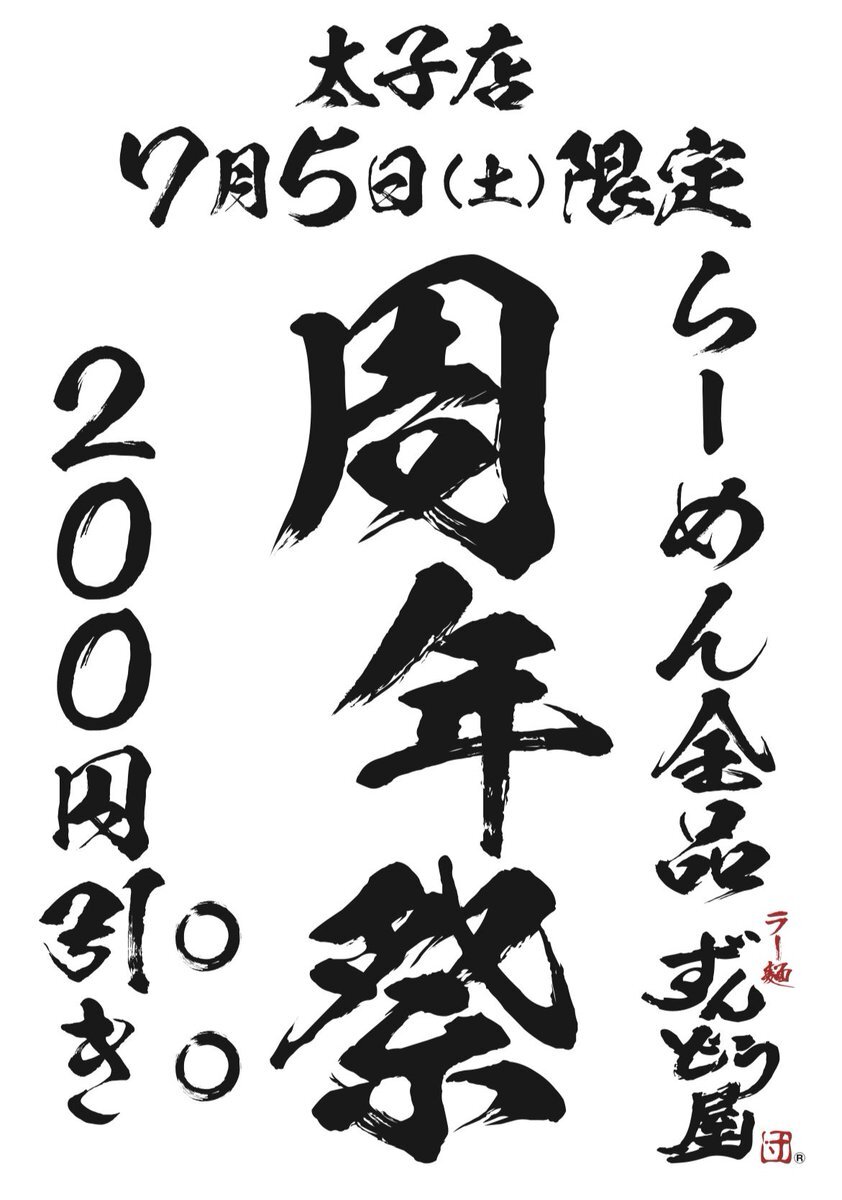 太子店
7月5日(土)限定
らーめん全品
周年祭
200円引き。。
ラー麺
ずんどう屋
団®